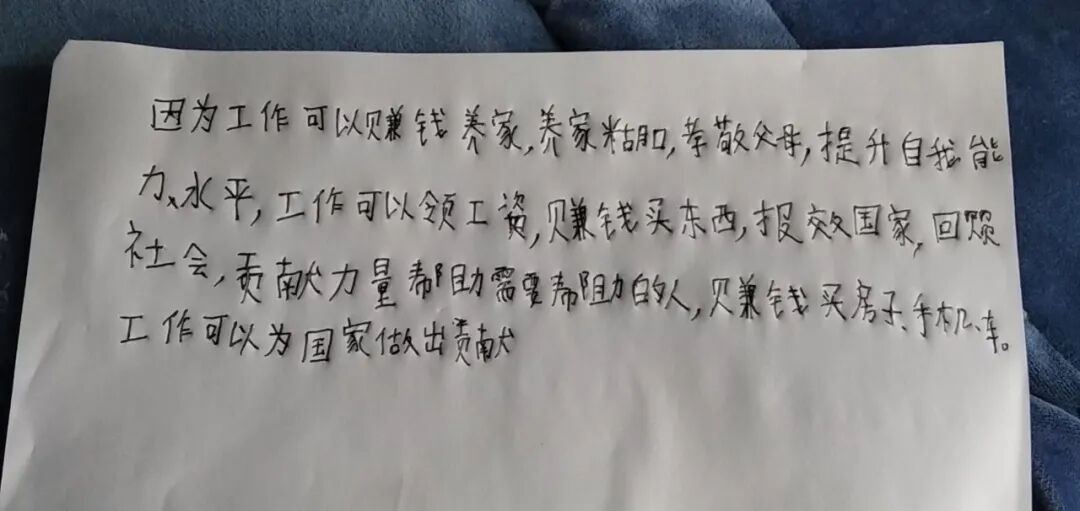 因为工作可以赚钱养家,养家粘口,孝敬父母,提升自我能
力、水平,工作可以领工资,赚钱买东西,报效国家,回赎
社会,贡献力量帮助需要帮助的人,赚钱买房子、手机、车。
工作可以为国家做出贡献